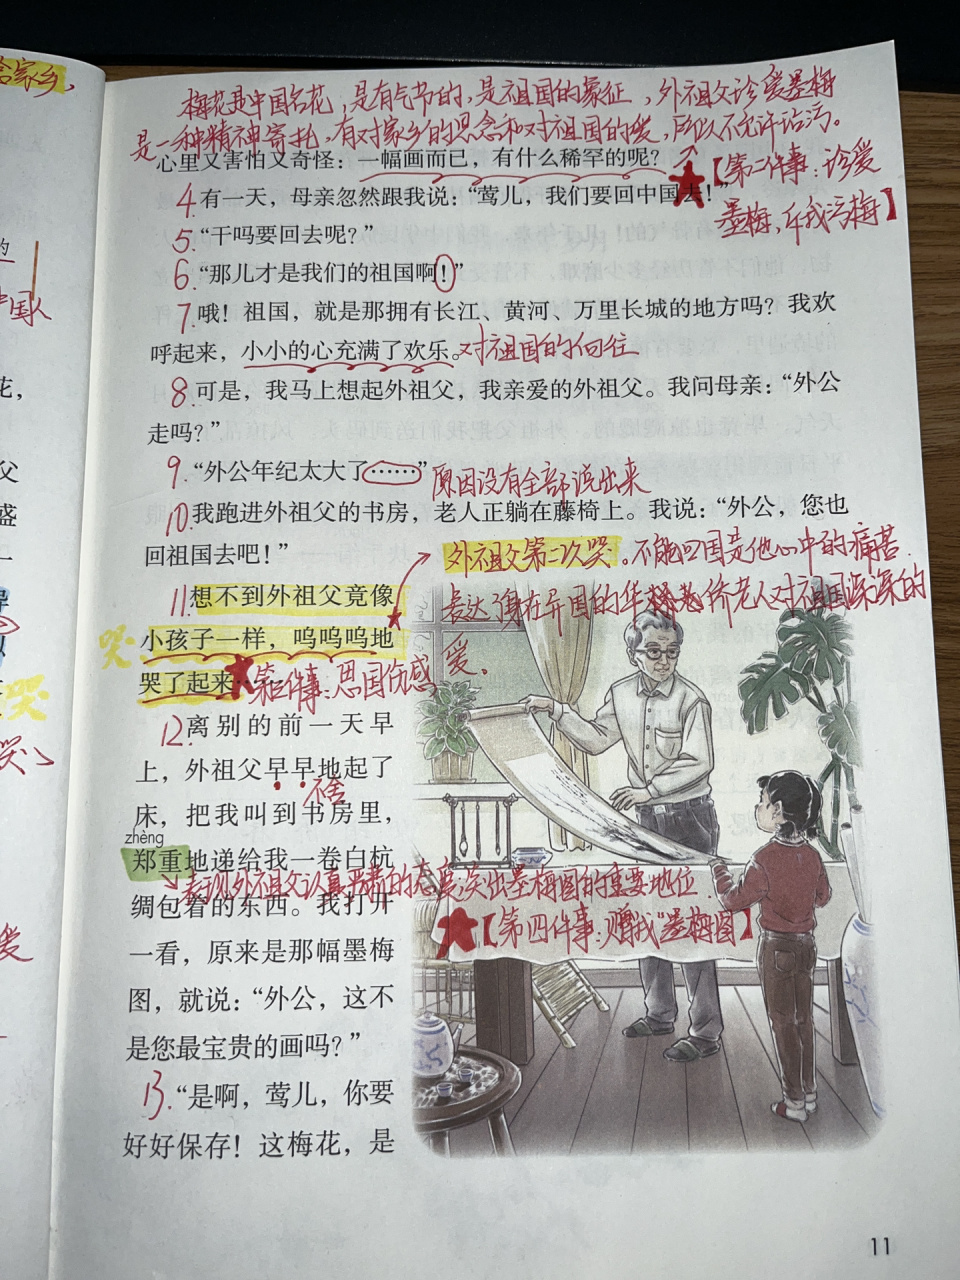 给家乡,
梅花是中国名花,是有气节的,是祖国的象征,外祖父珍爱墨梅
是一种精神寄托,有对家乡的思念和对祖国的爱,所以不允许沾污。
心里又害怕又奇怪：一幅画而已，有什么稀罕的呢？
【第二件事:珍爱
墨梅,斥我污梅】
4.有一天，母亲忽然跟我说：“莺儿，我们要回中国去！”
5.“干吗要回去呢？”
6.“那儿才是我们的祖国啊！”
7.哦！祖国，就是那拥有长江、黄河、万里长城的地方吗？我欢
呼起来，小小的心充满了欢乐。对祖国的向往
8.可是，我马上想起外祖父，我亲爱的外祖父。我问母亲：“外公
走吗？”
9.“外公年纪太大了……”原因没有全部说出来
10.我跑进外祖父的书房，老人正躺在藤椅上。我说：“外公，您也
回祖国去吧！”
外祖父第二次哭。不能回国是他心中的痛苦.
表达了身在异国的华侨老人对祖国深深的
爱.
11.想不到外祖父竟像
哭
小孩子一样，呜呜呜地
哭了起来……
第三件事:思国伤感
12.离别的前一天早
上，外祖父早早地起了
不舍
床，把我叫到书房里，
zhèng
郑重地递给我一卷白杭
表现外祖父认真严肃的态度,突出墨梅图的重要地位
绸包着的东西。我打开
【第四件事:赠我“墨梅图】
一看，原来是那幅墨梅
图，就说：“外公，这不
是您最宝贵的画吗？”
13.“是啊，莺儿，你要
好好保存！这梅花，是
11